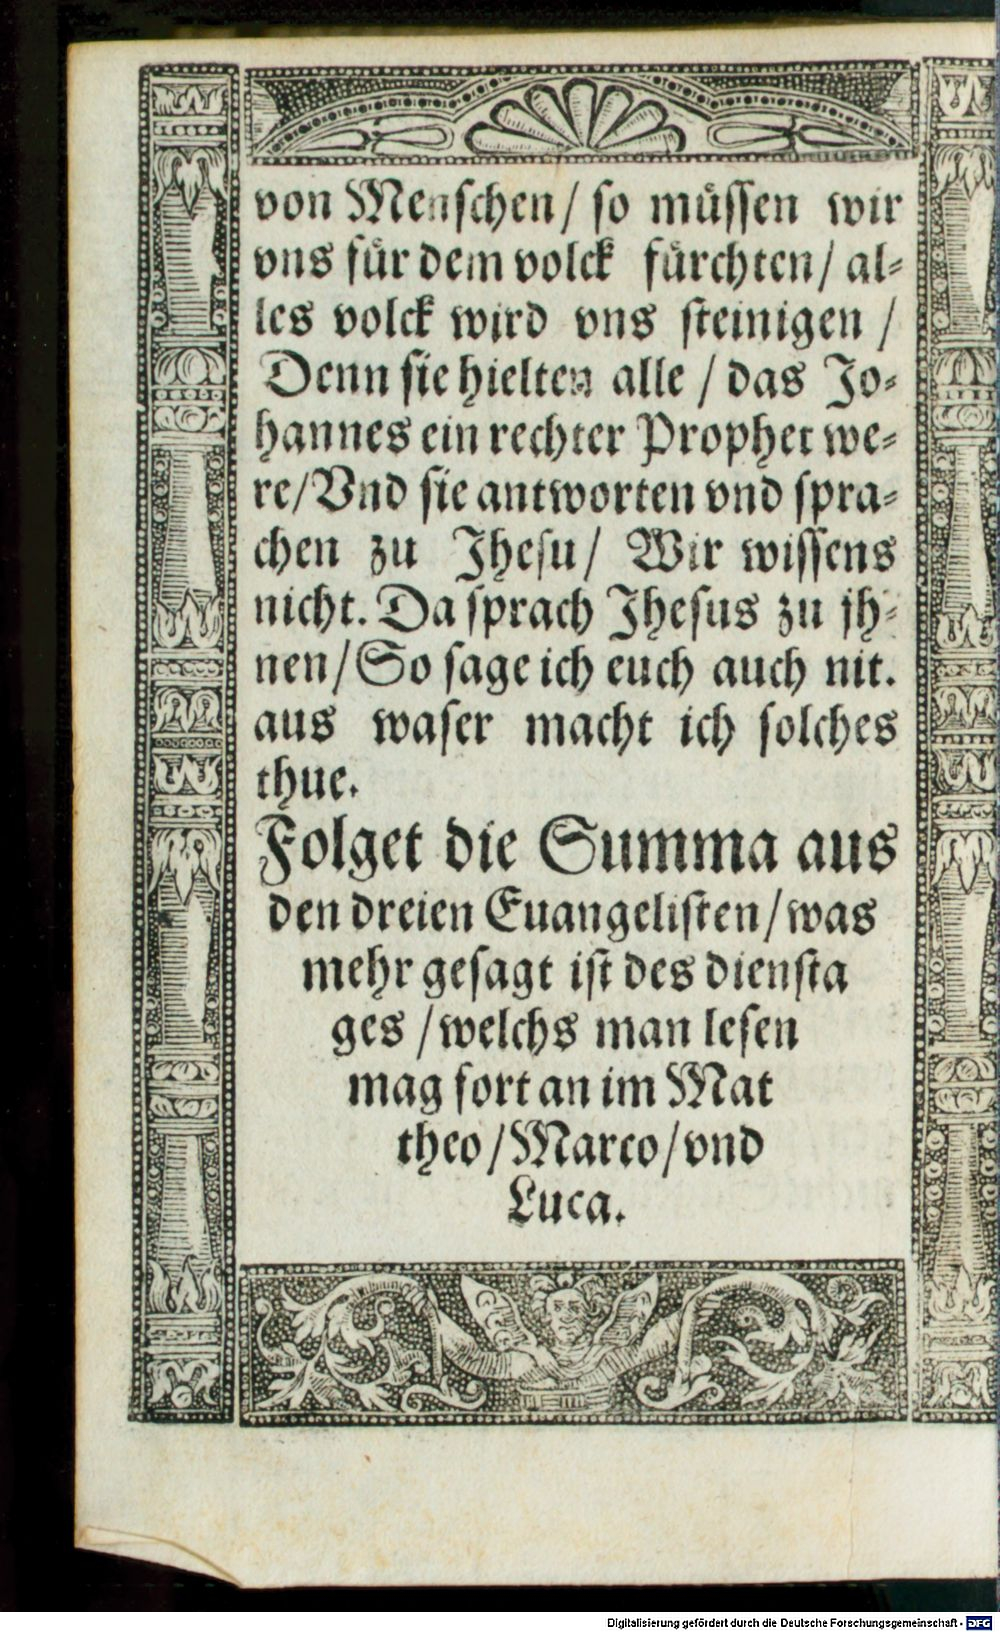 von Menschen / so müssen wir
vns für dem volck fürchten / al⸗
les volck wird vns steinigen /
Denn sie hielten alle / das Jo⸗
hannes ein rechter Prophet we⸗
re / Vnd sie antworten vnd spra⸗
chen zu Jhesu / Wir wissens
nicht. Da sprach Jhesus zu jh⸗
nen / So sage ich euch auch nit.
aus waser macht ich solches
thue.
Folget die Summa aus
den dreien Euangelisten / was
mehr gesagt ist des diensta
ges / welchs man lesen
mag fort an im Mat
theo / Marco / vnd
Luca.
Digitalisierung gefördert durch die Deutsche Forschungsgemeinschaft - DFG